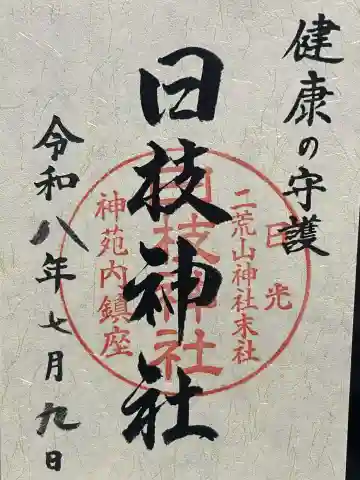 健康の守護
日枝神社
令和八年七月九日
日光
二荒山神社末社
日枝神社
神苑内鎮座